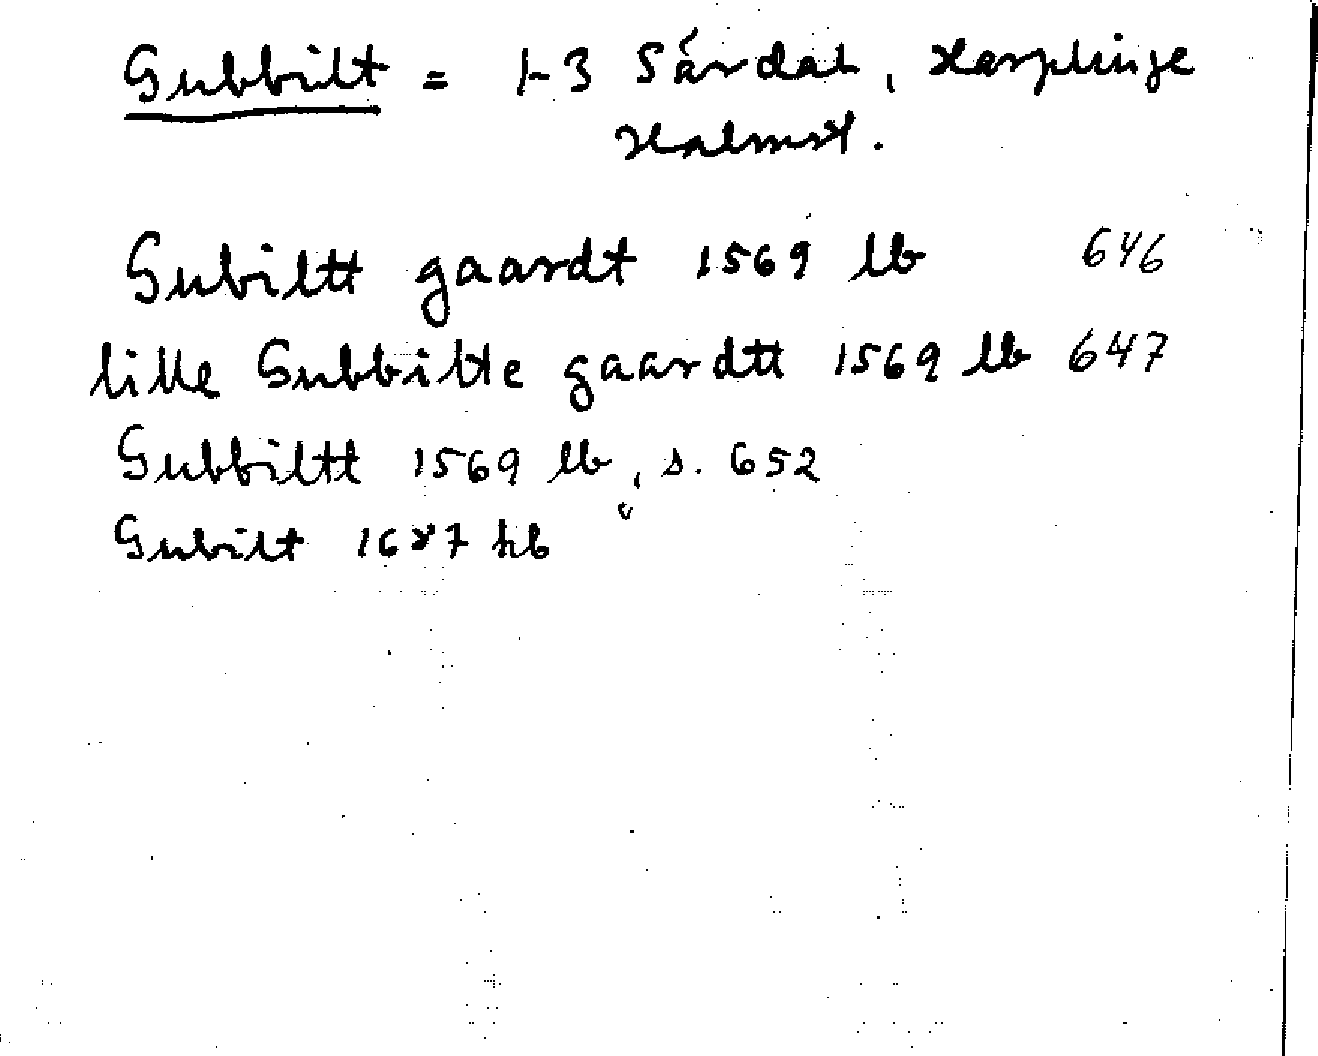 Gubbilt = 1-3 Särdal, Harplinge
Halmst.
Gubiltt gaardt 1569 lb 646
lille Gubbilte gaardtt 1569 lb 647
Gubbiltt 1569 lb, s. 652
Gubilt 1627 hb